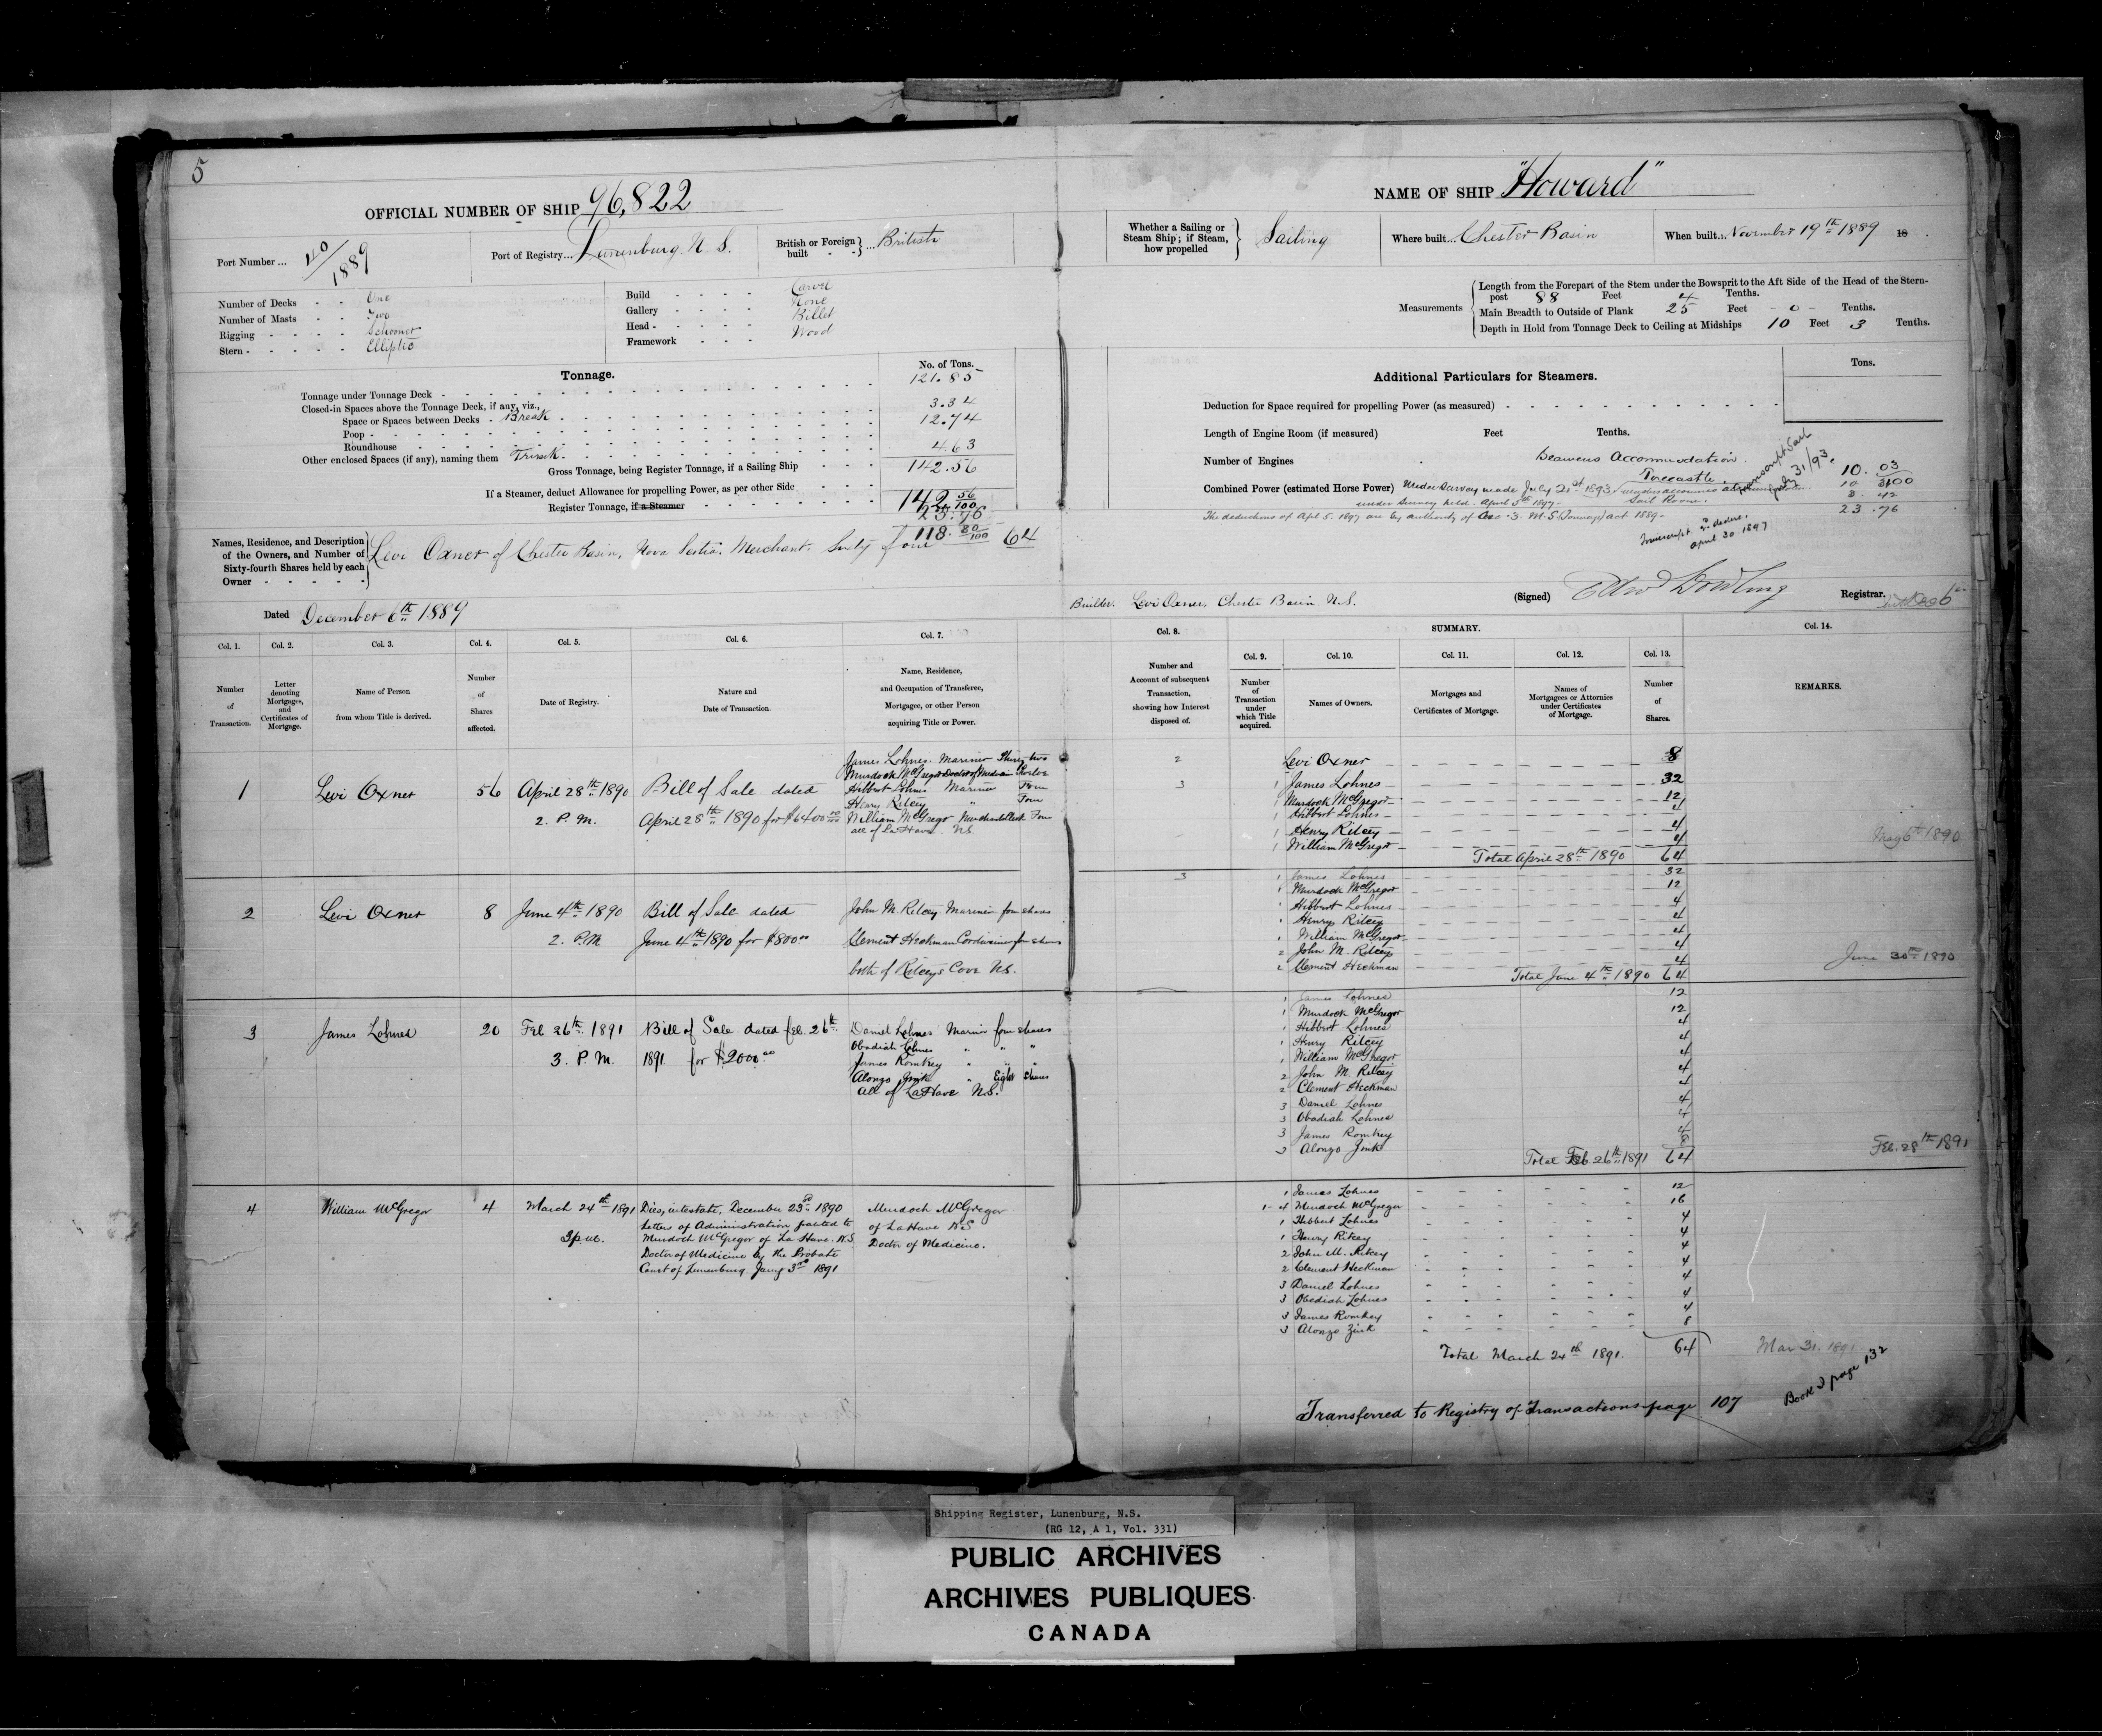 5
OFFICIAL NUMBER OF SHIP 96,822
Port Number ... 40/1889
Port of Registry... Lunenburg N. S.
British or Foreign built } ... British
Number of Decks - - One
Number of Masts - - Two
Rigging - - - - Schooner
Stern - - - - - Elliptic
Build - - - - Carvel
Gallery - - - - None
Head - - - - - Billet
Framework - - - Wood
Tonnage.
No. of Tons.
Tonnage under Tonnage Deck - 121.85
Closed-in Spaces above the Tonnage Deck, if any, viz.,
Space or Spaces between Decks - Break 3.34
Poop - 12.74
Roundhouse
Other enclosed Spaces (if any), naming them Trunk. 4.63
Gross Tonnage, being Register Tonnage, if a Sailing Ship 142.56
If a Steamer, deduct Allowance for propelling Power, as per other Side
Register Tonnage, if a Steamer 142 56/100
23.76
118. 80/100
Names, Residence, and Description of the Owners, and Number of Sixty-fourth Shares held by each Owner - - - - -
Levi Oxner of Chester Basin, Nova Scotia. Merchant. Sixty four 64
Dated December 6th 1889
NAME OF SHIP "Howard"
Whether a Sailing or Steam Ship; if Steam, how propelled } Sailing
Where built... Chester Basin
When built... November 19th 1889 18 .
Measurements
Length from the Forepart of the Stem under the Bowsprit to the Aft Side of the Head of the Stern-
post 88 Feet 4 Tenths.
Main Breadth to Outside of Plank 25 Feet - 0 - Tenths.
Depth in Hold from Tonnage Deck to Ceiling at Midships 10 Feet 3 Tenths.
Additional Particulars for Steamers.
Tons.
Deduction for Space required for propelling Power (as measured)
Length of Engine Room (if measured) Feet Tenths.
Number of Engines
Seamens Accommodation.
Forecastle 10. 03
Combined Power (estimated Horse Power) Under Survey made July 21st 1893
under Survey held. April 5th 1897.
Sail Room. 3. 42
23.76
The deductions of Apl 5. 1897 are by authority of Sec. 3. M.S. (Tonnage) act 1889 -
July 31/93.
April 30 1897
Builder. Levi Oxner, Chester Basin N.S.
(Signed) Edwd Dowling Registrar.
Col. 1. Number of Transaction.
Col. 2. Letter denoting Mortgages, and Certificates of Mortgage.
Col. 3. Name of Person from whom Title is derived.
Col. 4. Number of Shares affected.
Col. 5. Date of Registry.
Col. 6. Nature and Date of Transaction.
Col. 7. Name, Residence, and Occupation of Transferee, Mortgagee, or other Person acquiring Title or Power.
Col. 8. Number and Account of subsequent Transaction, showing how Interest disposed of.
SUMMARY.
Col. 9. Number of Transaction under which Title acquired.
Col. 10. Names of Owners.
Col. 11. Mortgages and Certificates of Mortgage.
Col. 12. Names of Mortgagees or Attornies under Certificates of Mortgage.
Col. 13. Number of Shares.
Col. 14. REMARKS.
1 Levi Oxner 56 April 28th 1890
2. P.M.
Bill of Sale dated
April 28th 1890 for $6400 00/100
James Lohnes. Mariner Thirty two
Murdock McGregor Doctor of Medicine Twelve
Hibbert Lohnes Mariner Four
Henry Ritcey " Four
William McGregor Four
all of LaHave. N.S.
2 Levi Oxner - 8
3 1 James Lohnes - 32
1 Murdock McGregor - 12
1 Hibbert Lohnes - 4
1 Henry Ritcey - 4
1 William McGregor - 4
Total April 28th 1890 64
May 6th 1890
2 Levi Oxner 8 June 4th 1890
2. P.M.
Bill of Sale dated
June 4th 1890 for $800 00
John M. Ritcey Mariner four shares
Clement Heckman Cordwainer four shares
both of Ritceys Cove N.S.
3 1 James Lohnes 32
1 Murdock McGregor 12
1 Hibbert Lohnes 4
1 Henry Ritcey 4
1 William McGregor 4
2 John M. Ritcey 4
2 Clement Heckman 4
Total June 4th 1890 64
June 30th 1890
3 James Lohnes 20 Feb 26th 1891
3. P.M.
Bill of Sale dated feb. 26th
1891 for $2000 00
Daniel Lohnes Mariner four shares
Obadiah Lohnes " " "
James Romkey " " "
Alonzo Zink " Eight shares
All of LaHave N.S.
1 James Lohnes 12
1 Murdock McGregor 12
1 Hibbert Lohnes 4
1 Henry Ritcey 4
1 William McGregor 4
2 John M. Ritcey 4
2 Clement Heckman 4
3 Daniel Lohnes 4
3 Obadiah Lohnes 4
3 James Romkey 4
3 Alonzo Zink 8
Total Feb 26th 1891 64
Feb. 28th 1891
4 William McGregor 4 March 24th 1891
3 p.m.
Dies, intestate, December 23rd 1890
Letters of Administration granted to
Murdoch McGregor of La Have. N.S.
Doctor of Medicine by the Probate
Court of Lunenburg Jany 3rd 1891
Murdoch McGregor
of LaHave N.S
Doctor of Medicine.
1 James Lohnes 12
1-4 Murdoch McGregor 16
1 Hibbert Lohnes 4
1 Henry Ritcey 4
2 John M. Ritcey 4
2 Clement Heckman 4
3 Daniel Lohnes 4
3 Obediah Lohnes 4
3 James Romkey 4
3 Alonzo Zink 8
Total March 24th 1891. 64
Mar 31. 1891
Transferred to Registry of Transactions page 107
Book 2 page 132
Shipping Register, Lunenburg, N.S.
(RG 12, A 1, Vol. 331)
PUBLIC ARCHIVES
ARCHIVES PUBLIQUES
CANADA